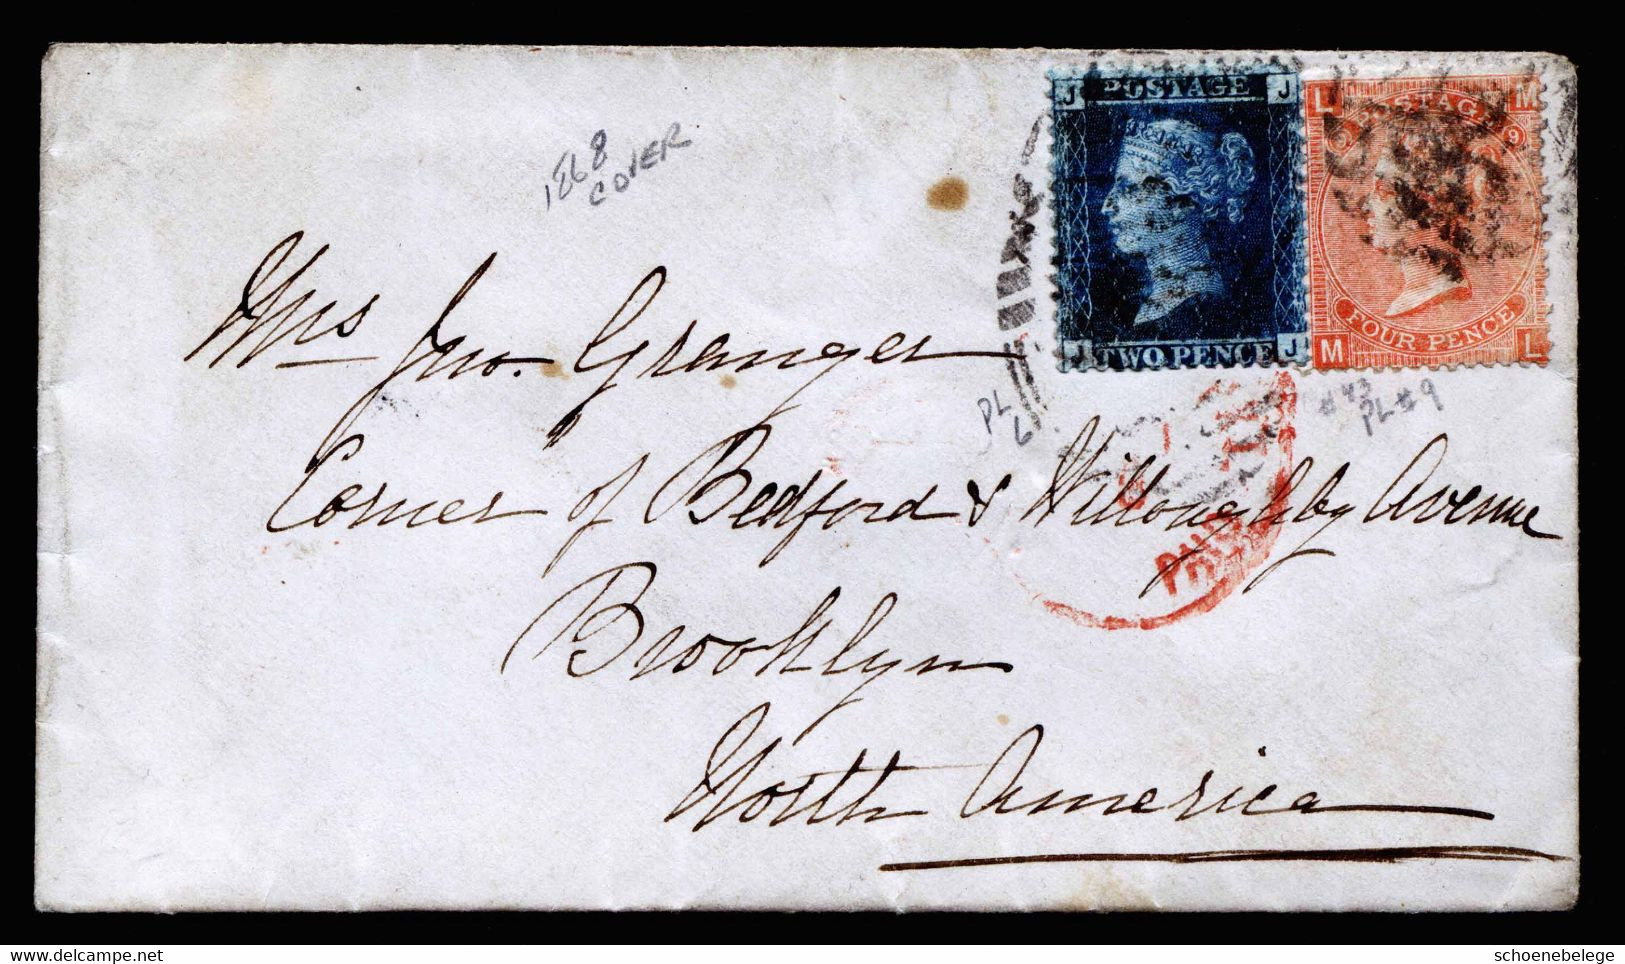 1868
COVER
J POSTAGE J
J TWO PENCE J
L POSTAGE M
9 9
M FOUR PENCE L
Mrs Jno. Granger
PL
6
#43
PL#9
Corner of Bedford & Willoughby Avenue
Brooklyn
North America
www.delcampe.net
schoenebelege